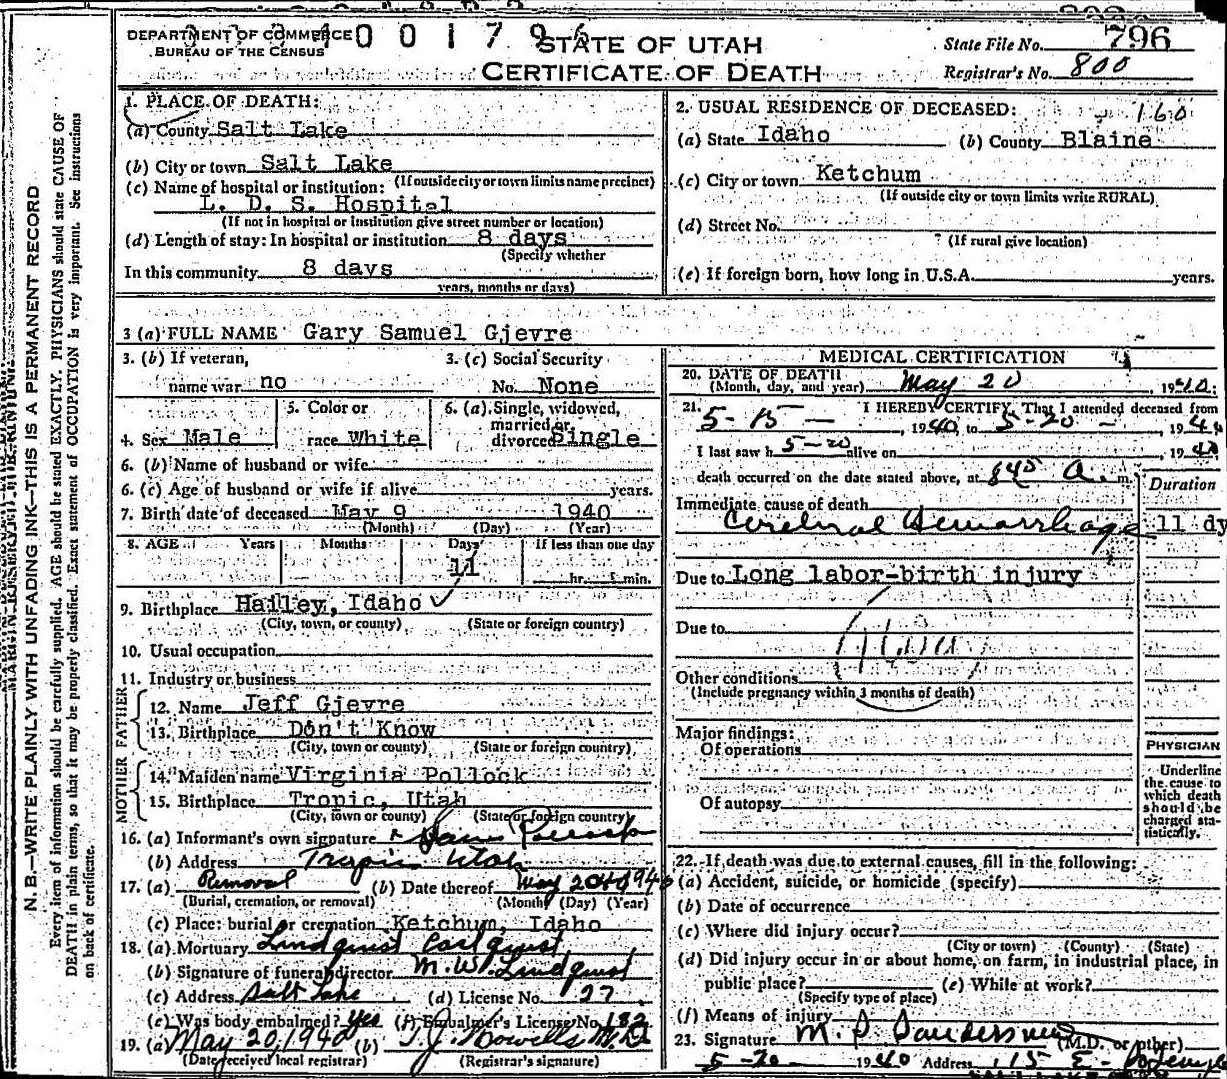 DEPARTMENT OF COMMERCE
BUREAU OF THE CENSUS
STATE OF UTAH
CERTIFICATE OF DEATH
State File No. 796
Registrar's No. 800
1. PLACE OF DEATH:
(a) County Salt Lake
(b) City or town Salt Lake
(If outside city or town limits name precinct)
(c) Name of hospital or institution:
L. D. S. Hospital
(If not in hospital or institution give street number or location)
(d) Length of stay: In hospital or institution 8 days
(Specify whether
In this community 8 days
years, months or days)
2. USUAL RESIDENCE OF DECEASED: 160
(a) State Idaho (b) County Blaine
(c) City or town Ketchum
(If outside city or town limits write RURAL)
(d) Street No.
(If rural give location)
(e) If foreign born, how long in U.S.A. years.
3 (a) FULL NAME Gary Samuel Gjevre
3. (b) If veteran,
name war no
3. (c) Social Security
No. None
4. Sex Male
5. Color or
race White
6. (a) Single, widowed,
married or
divorced Single
6. (b) Name of husband or wife
6. (c) Age of husband or wife if alive years.
7. Birth date of deceased May 9 1940
(Month) (Day) (Year)
8. AGE Years Months Days If less than one day
11 hr. min.
9. Birthplace Hailey, Idaho
(City, town, or county) (State or foreign country)
10. Usual occupation
11. Industry or business
FATHER
12. Name Jeff Gjevre
13. Birthplace Don't Know
(City, town or county) (State or foreign country)
MOTHER
14. Maiden name Virginia Pollock
15. Birthplace Tropic, Utah
(City, town or county) (State or foreign country)
16. (a) Informant's own signature Pollock
(b) Address Tropic Utah
17. (a) Removal (b) Date thereof May 20 1940
(Burial, cremation, or removal) (Month) (Day) (Year)
(c) Place: burial or cremation Ketchum, Idaho
18. (a) Mortuary Lindquist
(b) Signature of funeral director M. W. Lindquist
(c) Address Salt Lake (d) License No. 27
(e) Was body embalmed? yes (f) Embalmer's License No. 182
19. (a) May 20, 1940 (b) T. J. Howells M.D.
(Date received local registrar) (Registrar's signature)
MEDICAL CERTIFICATION
20. DATE OF DEATH
(Month, day, and year) May 20 1940
21. I HEREBY CERTIFY, That I attended deceased from
5-15- , 1940, to 5-20- , 1940
I last saw h 5-20 alive on , 1940
death occurred on the date stated above, at 845 a. m.
Duration
Immediate cause of death
Cerebral Hemorrhage 11 dy
Due to Long labor-birth injury
Due to
Other conditions
(Include pregnancy within 3 months of death)
Major findings:
Of operations
Of autopsy
PHYSICIAN
Underline
the cause to
which death
should be
charged sta-
tistically.
22. If death was due to external causes, fill in the following:
(a) Accident, suicide, or homicide (specify)
(b) Date of occurrence
(c) Where did injury occur?
(City or town) (County) (State)
(d) Did injury occur in or about home, on farm, in industrial place, in
public place? (e) While at work?
(Specify type of place)
(f) Means of injury
23. Signature M. S. Sanderson
(M.D. or other)
5-20 1940 Address 115 E-
N. B.—WRITE PLAINLY WITH UNFADING INK—THIS IS A PERMANENT RECORD
Every item of information should be carefully supplied. AGE should be stated EXACTLY. PHYSICIANS should state CAUSE OF
DEATH in plain terms, so that it may be properly classified. Exact statement of OCCUPATION is very important. See instructions
on back of certificate.